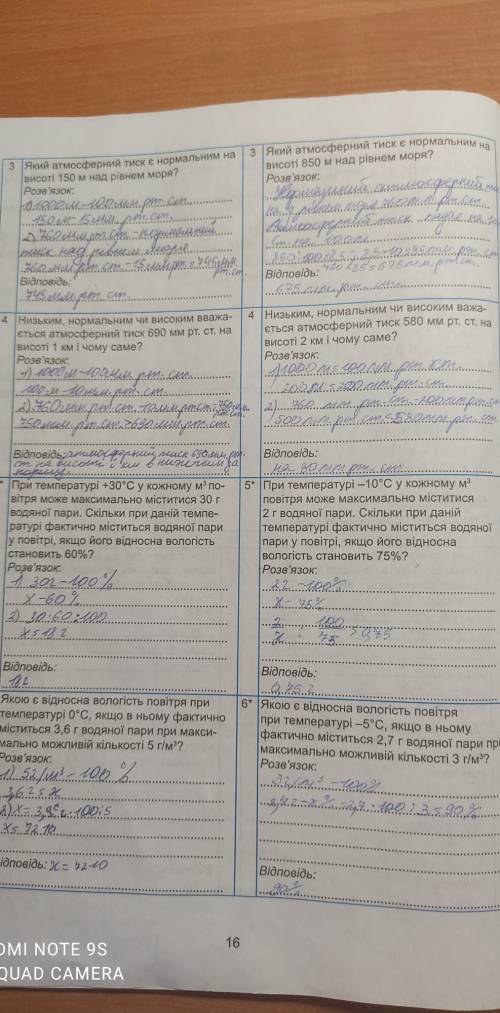 3 Який атмосферний тиск є нормальним на
висоті 150 м над рівнем моря?
Розв'язок:
1) 1000 м - 100 мм. рт. ст.
150 м - 15 мм. рт. ст.
2) 760 мм рт. ст. - нормальний
тиск над рівнем моря
760 мм. рт. ст. - 15 мм. рт. = 745 мм.
рт. ст.
Відповідь:
745 мм. рт. ст.
3 Який атмосферний тиск є нормальним на
висоті 850 м над рівнем моря?
Розв'язок:
Нормальний атмосферний
на рівнем моря 760 рт. ст.
Атмосферний тиск падає на
на 100 м
Відповідь:
675 рт. ст.
4 Низьким, нормальним чи високим вважа-
ється атмосферний тиск 690 мм рт. ст. на
висоті 1 км і чому саме?
Розв'язок:
1) 1000 м - 100 мм. рт. ст.
100 м - 10 мм. рт. ст.
2) 760 мм рт. ст.
750 мм. рт. ст. 690 мм. рт. ст.
Відповідь: атмосферний тиск 690 мм. рт.
ст на висоті 1 км є нижчим за
норму
4 Низьким, нормальним чи високим вважа-
ється атмосферний тиск 580 мм рт. ст. на
висоті 2 км і чому саме?
Розв'язок:
1) 1000 м = 100 мм рт. ст.
2) 760 рт. ст. - 200 рт. ст
Відповідь:
на 20 рт. ст.
* При температурі +30°С у кожному м³ по-
вітря може максимально міститися 30 г
водяної пари. Скільки при даній темпе-
ратурі фактично міститься водяної пари
у повітрі, якщо його відносна вологість
становить 60%?
Розв'язок:
1) 30 г - 100 %
х - 60 %
2) 30·60:100
х = 18 г
Відповідь:
18 г
5* При температурі –10°С у кожному м³
повітря може максимально міститися
2 г водяної пари. Скільки при даній
температурі фактично міститься водяної
пари у повітрі, якщо його відносна
вологість становить 75%?
Розв'язок:
2 г - 100%
х - 75%
2 100
х 75 0,75
Відповідь:
Якою є відносна вологість повітря при
температурі 0°С, якщо в ньому фактично
міститься 3,6 г водяної пари при макси-
мально можливій кількості 5 г/м³?
Розв'язок:
1) 5 г/м³ - 100 %
3,6 г = х
х = 72
Відповідь: х = 72
6* Якою є відносна вологість повітря
при температурі –5°С, якщо в ньому
фактично міститься 2,7 г водяної пари при
максимально можливій кількості 3 г/м³?
Розв'язок:
3 г/м³ - 100%
2,7 г - х % = 2,7 · 100 : 3 = 90%
Відповідь:
90%
16
OMI NOTE 9S
QUAD CAMERA